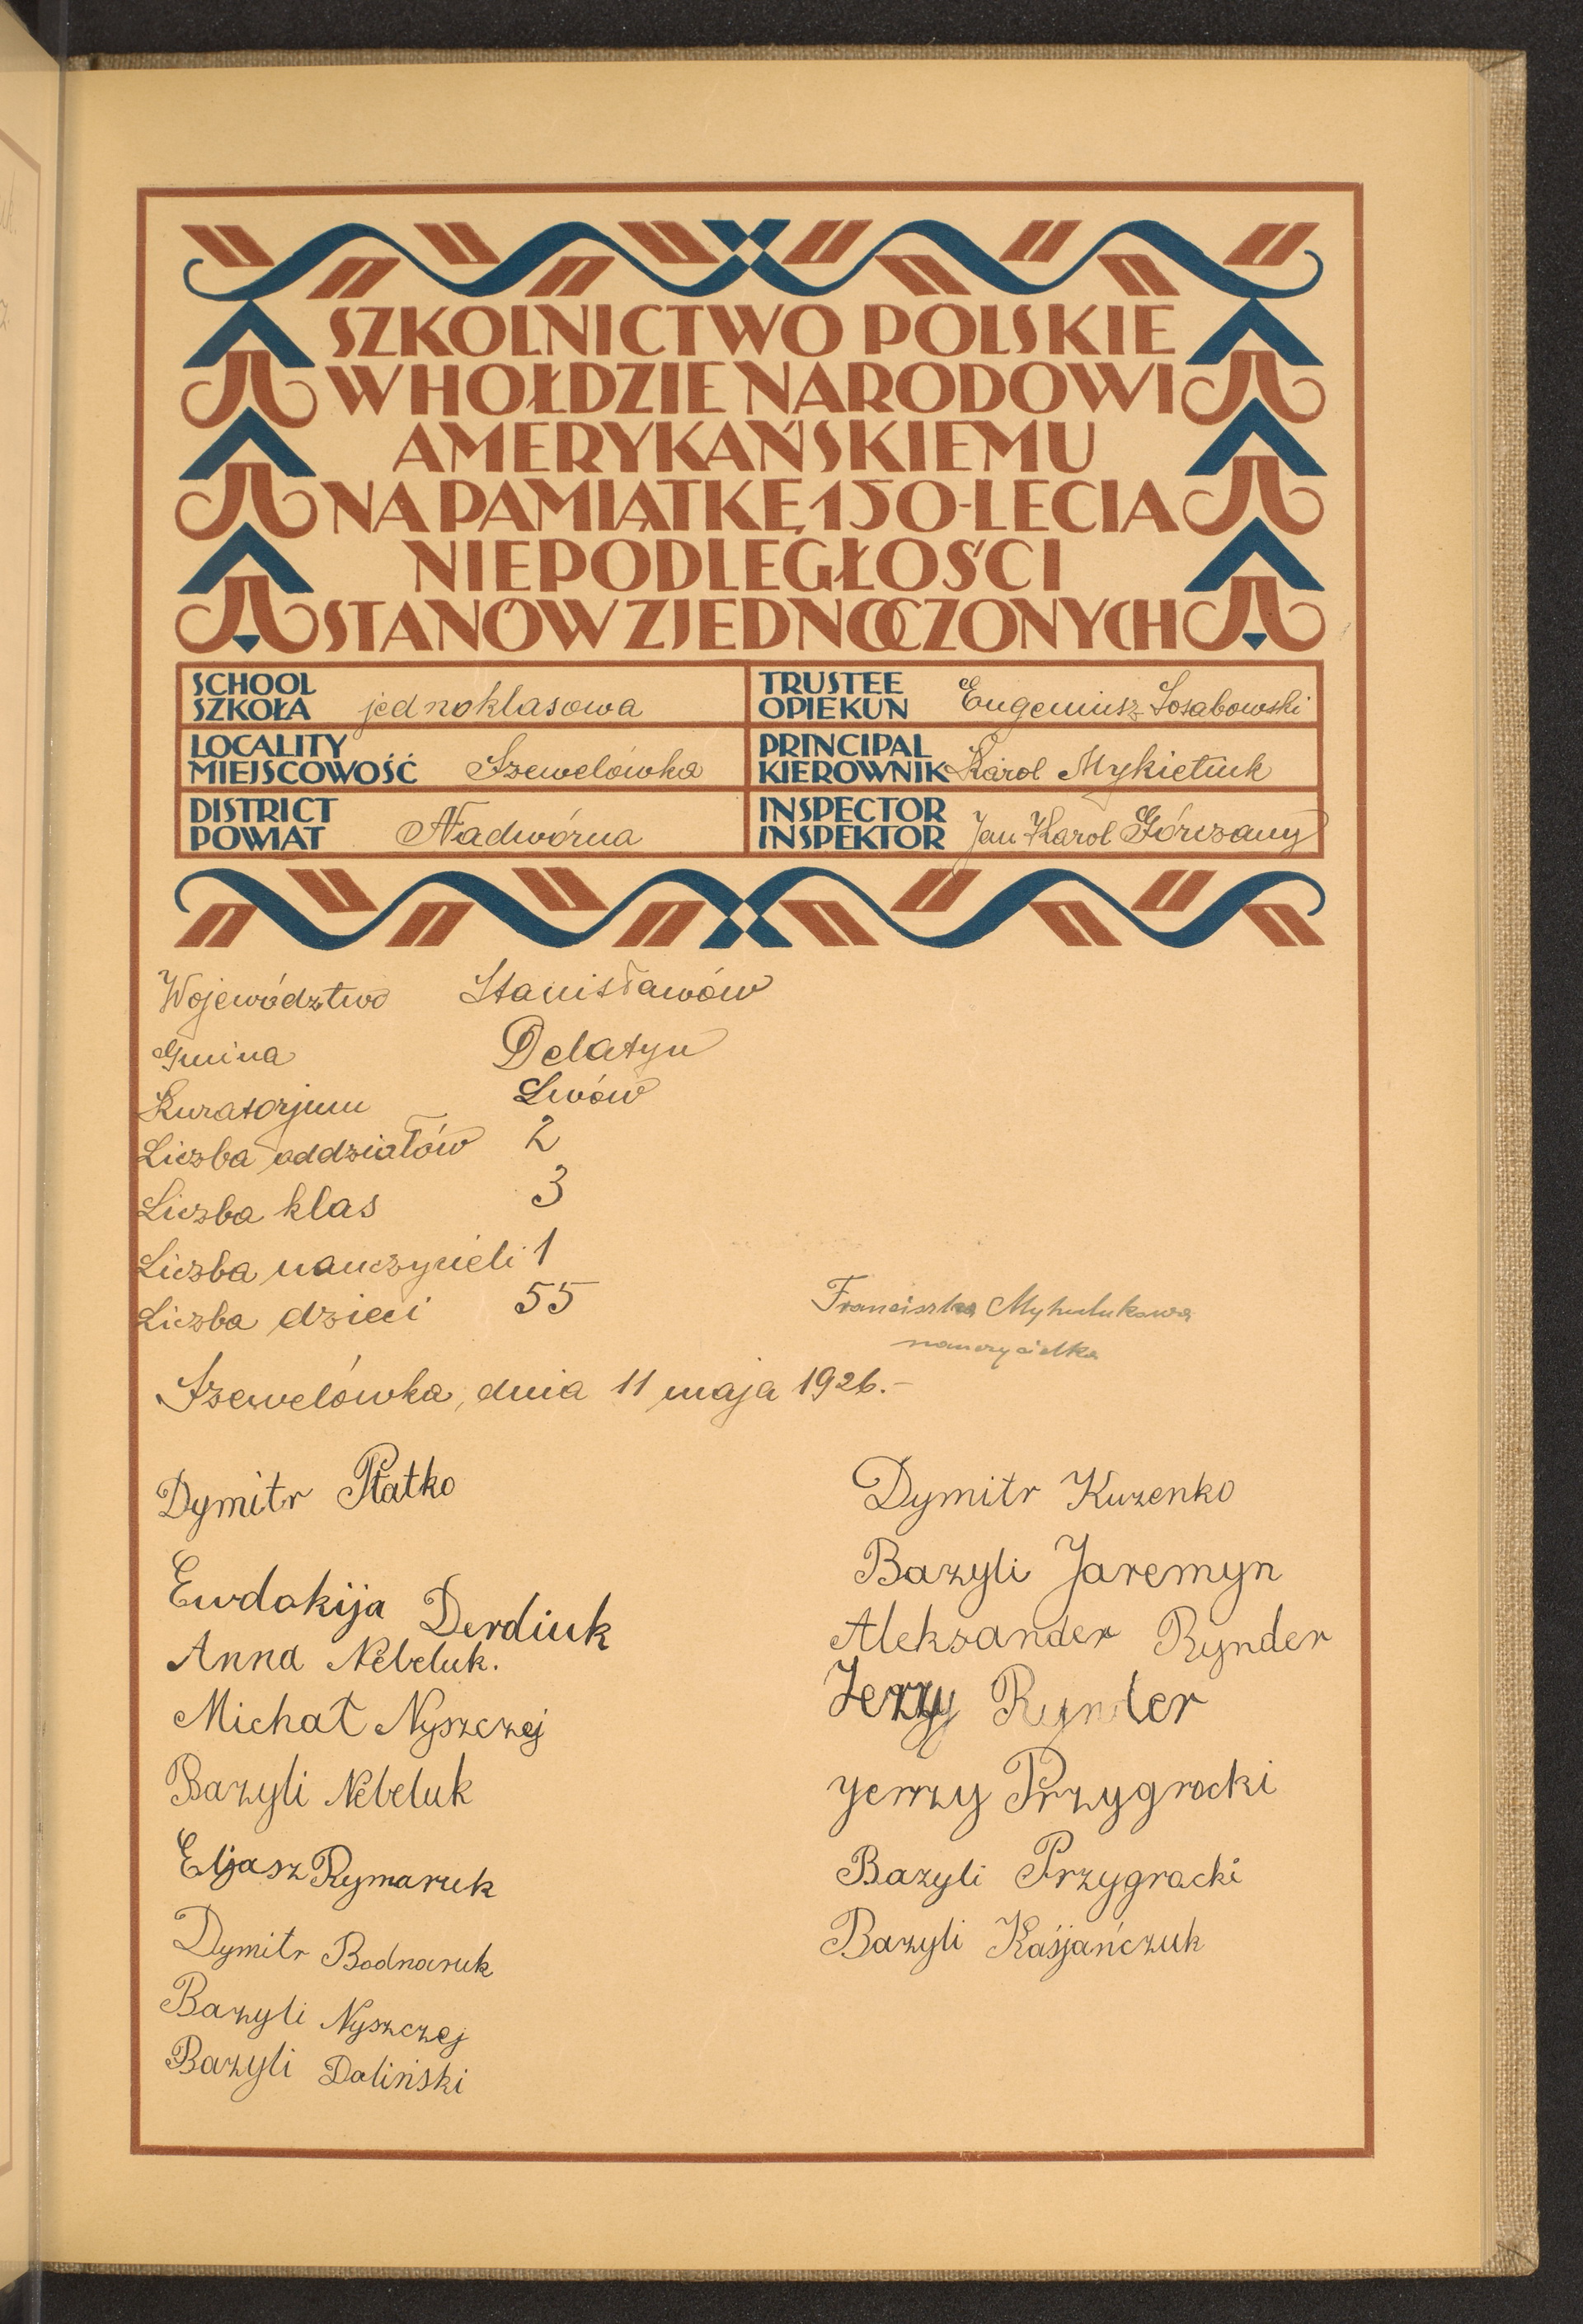 SZKOLNICTWO POLSKIE
W HOŁDZIE NARODOWI
AMERYKAŃSKIEMU
NA PAMIĄTKĘ 150-LECIA
NIEPODLEGŁOŚCI
STANÓW ZJEDNOCZONYCH
SCHOOL
SZKOŁA jednoklasowa
TRUSTEE
OPIEKUN Eugeniusz Sosabowski
LOCALITY
MIEJSCOWOŚĆ Szewelówka
PRINCIPAL
KIEROWNIK Karol Mykietiuk
DISTRICT
POWIAT Nadwórna
INSPECTOR
INSPEKTOR Jan Karol Górszany
Województwo Stanisławów
Gmina Delatyn
Kuratorjum Lwów
Liczba oddziałów 2
Liczba klas 3
Liczba nauczycieli 1
Liczba dzieci 55
Franciszka
nauczycielka
Szewelówka, dnia 11 maja 1926.-
Dymitr Płatko
Ewdokija Derdiuk
Anna Nebeluk.
Michał Nyszczej
Bazyli Nebeluk
Eljasz Rymaruk
Dymitr Bodnaruk
Bazyli Nyszczej
Bazyli Doliński
Dymitr Kuzenko
Bazyli Jaremyn
Aleksander Rynder
Jerzy Rynder
Jerzy Przygrocki
Bazyli Przygrocki
Bazyli Kaśjańczuk